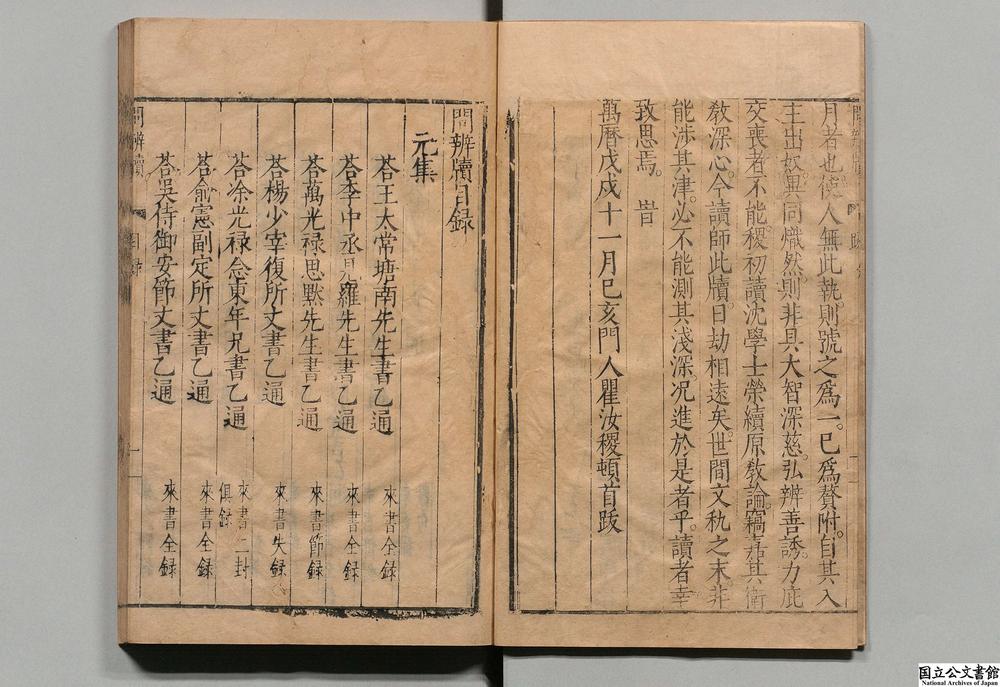 月者也使人無此執則號之為一已為贅附自其入
主出奴異同熾然則非具大智深慈弘辨善誘力庇
交喪者不能稷初讀沈學士榮續原敎論竊喜其衛
敎深心今讀師此牘日劫相遠矣世間文執之末非
能涉其津必不能測其淺深况進於是者乎讀者幸
致思焉 旹
萬曆戊戌十一月己亥門人瞿汝稷頓首跋
問辨牘目録
元集
荅王太常塘南先生書乙通 來書全録
荅李中丞見羅先生書乙通 來書全録
荅萬光禄思默先生書乙通 來書節録
荅楊少宰復所丈書乙通 來書失録
荅凃光禄念東年兄書乙通 來書二封俱録
荅俞憲副定所丈書乙通 來書全録
荅吳侍御安節丈書乙通 來書全録
問辨牘 目録 一
国立公文書館
National Archives of Japan